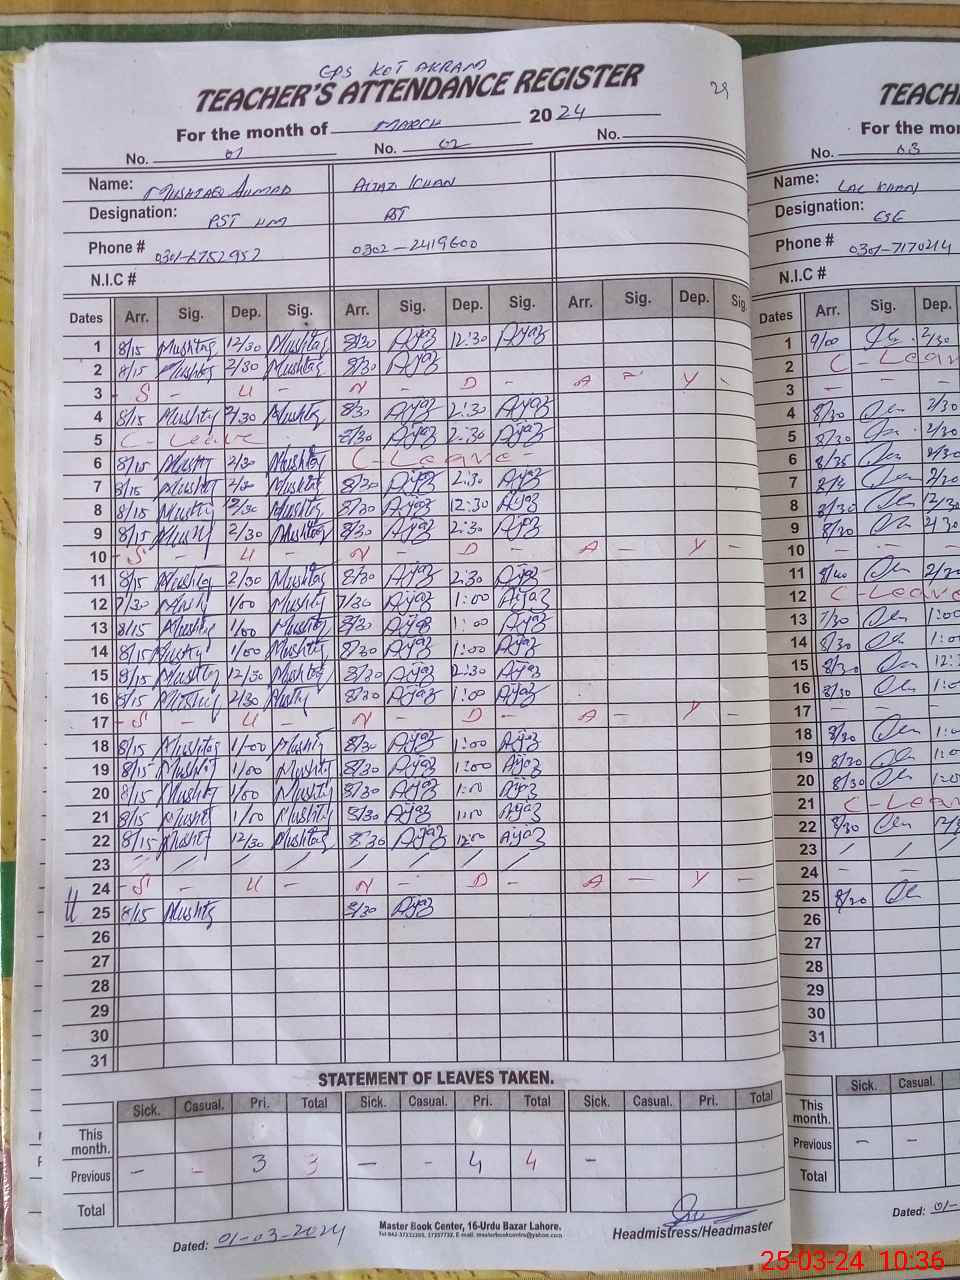 GPS KOT AKRAM
TEACHER'S ATTENDANCE REGISTER
29
For the month of MARCH 2024
No. 01 No. 02 No.
Name: MUSHTAQ AHMAD AIJAZ KHAN
Designation: PST HM PST
Phone # 0301-6752952 0302-2419600
N.I.C #
Dates Arr. Sig. Dep. Sig. Arr. Sig. Dep. Sig. Arr. Sig. Dep. Sig.
1 8/15 Mushtaq 12/30 Mushtaq 8/30 Aijaz 12:30 Aijaz
2 8/15 Mushtaq 2/30 Mushtaq 8/30 Aijaz
3 S - U - N - D - A - Y -
4 8/15 Mushtaq 2/30 Mushtaq 8/30 Aijaz 2:30 Aijaz
5 C - Leave 8/30 Aijaz 2:30 Aijaz
6 8/15 Mushtaq 2/30 Mushtaq C - Leave -
7 8/15 Mushtaq 2/30 Mushtaq 8/30 Aijaz 2:30 Aijaz
8 8/15 Mushtaq 12/30 Mushtaq 8/30 Aijaz 12:30 Aijaz
9 8/15 Mushtaq 2/30 Mushtaq 8/30 Aijaz 2:30 Aijaz
10 - S - U - N - D - A - Y -
11 8/15 Mushtaq 2/30 Mushtaq 8/30 Aijaz 2:30 Aijaz
12 7/30 Mushtaq 1/00 Mushtaq 7/30 Aijaz 1:00 Aijaz
13 8/15 Mushtaq 1/00 Mushtaq 8/30 Aijaz 1:00 Aijaz
14 8/15 Mushtaq 1/00 Mushtaq 8/30 Aijaz 1:00 Aijaz
15 8/15 Mushtaq 12/30 Mushtaq 8/30 Aijaz 12:30 Aijaz
16 8/15 Mushtaq 2/30 Mushtaq 8/30 Aijaz 1:00 Aijaz
17 - S - U - N - D - A - Y -
18 8/15 Mushtaq 1/00 Mushtaq 8/30 Aijaz 1:00 Aijaz
19 8/15 Mushtaq 1/00 Mushtaq 8/30 Aijaz 1:00 Aijaz
20 8/15 Mushtaq 1/00 Mushtaq 8/30 Aijaz 1:00 Aijaz
21 8/15 Mushtaq 1/00 Mushtaq 8/30 Aijaz 1:00 Aijaz
22 8/15 Mushtaq 12/30 Mushtaq 8/30 Aijaz 12:00 Aijaz
23
24 - S - U - N - D - A - Y -
25 8/15 Mushtaq 8/30 Aijaz
26
27
28
29
30
31
STATEMENT OF LEAVES TAKEN.
Sick. Casual. Pri. Total Sick. Casual. Pri. Total Sick. Casual. Pri. Total
This month.
Previous - - 3 3 - - 4 4 -
Total
Dated: 01-03-2024
Master Book Center, 16-Urdu Bazar Lahore.
Headmistress/Headmaster
TEACH
For the mon
No. 03
Name: LAL KHAN
Designation: ESE
Phone # 0301-7170214
N.I.C #
Dates Arr. Sig. Dep.
1 9/00 2/30
2 C - Leav
3 - - -
4 8/30 2/30
5 8/30 2/30
6 8/35 2/30
7 2/30
8 8/30 12/30
9 8/30 2/30
10 - - -
11 8/40 2/30
12 C - Leave
13 7/30 1:00
14 8/30 1:0
15 8/30 12:
16 8/30 1:0
17 - - -
18 8/30 1:0
19 8/30 1:0
20 8/30 1:0
21 C - Leav
22 8/30 12/3
23
24 - - -
25 8/30
26
27
28
29
30
31
Sick. Casual.
This month.
Previous - -
Total
Dated: 01-
25-03-24 10:36